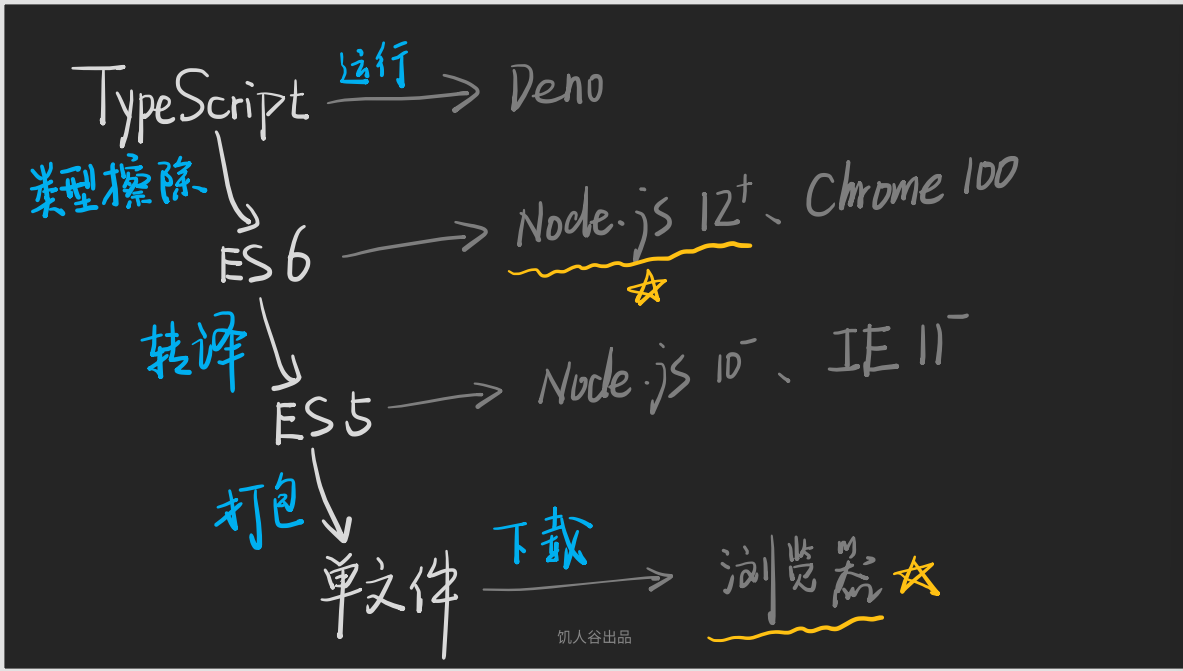 TypeScript 运行 Deno
类型擦除
ES6 Node.js 12+、Chrome 100
转译
ES5 Node.js 10-、IE 11-
打包
单文件 下载 浏览器
饥人谷出品